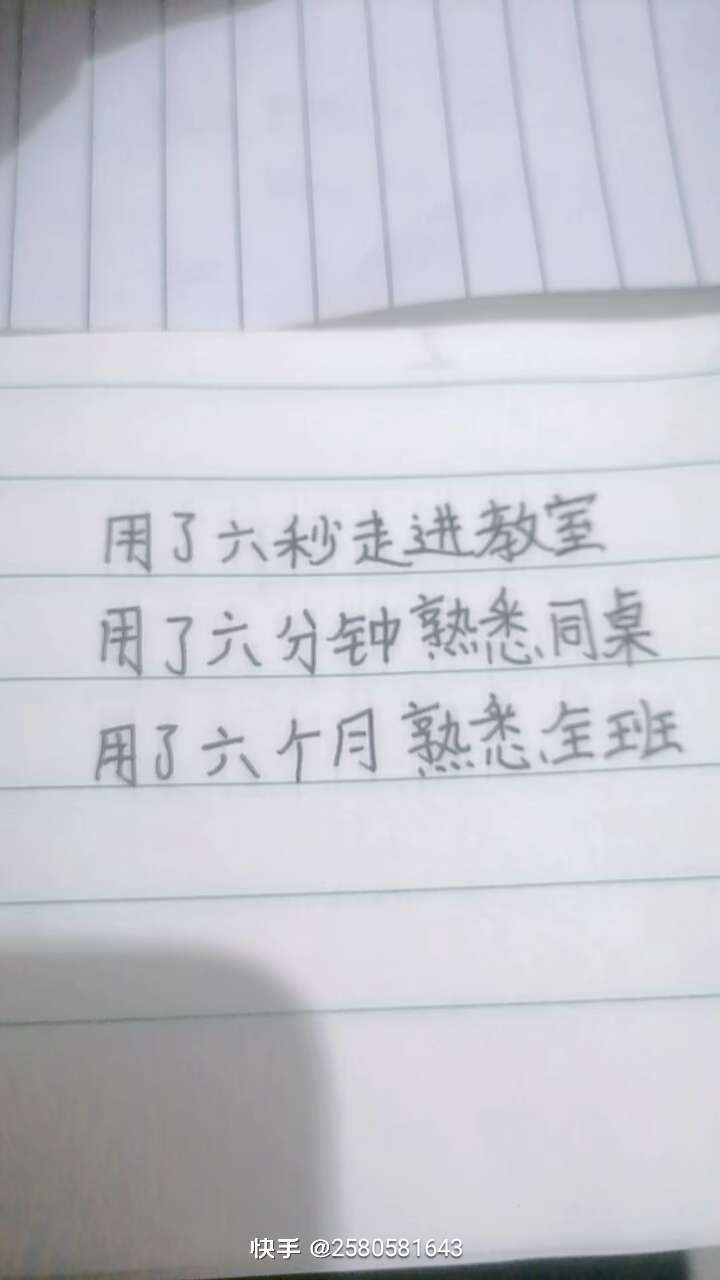 用了六秒走进教室
用了六分钟熟悉同桌
用了六个月熟悉全班
快手 @2580581643